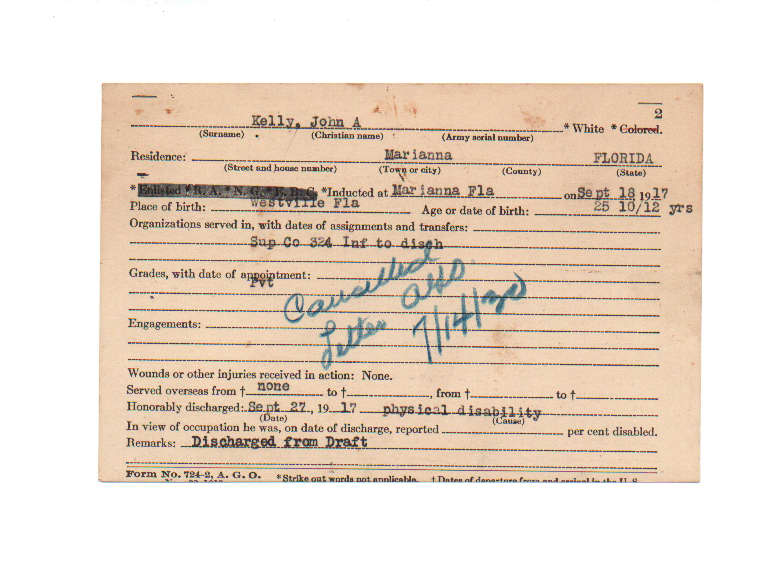 2
Kelly, John A * White * Colored.
(Surname) (Christian name) (Army serial number)
Residence: Marianna FLORIDA
(Street and house number) (Town or city) (County) (State)
* Enlisted * R. A. * N. G. * E. R. C. * Inducted at Marianna Fla on Sept 18, 1917
Place of birth: Westville Fla Age or date of birth: 25 10/12 yrs
Organizations served in, with dates of assignments and transfers:
Sup Co 324 Inf to disch
Grades, with date of appointment:
Pvt
Cancelled
Letter AGO
7/14/30
Engagements:
Wounds or other injuries received in action: None.
Served overseas from † none to †, from † to †
Honorably discharged: Sept 27, 19 17 physical disability
(Date) (Cause)
In view of occupation he was, on date of discharge, reported per cent disabled.
Remarks: Discharged from Draft
Form No. 724-2, A. G. O. * Strike out words not applicable. † Dates of departure from and arrival in the U. S.